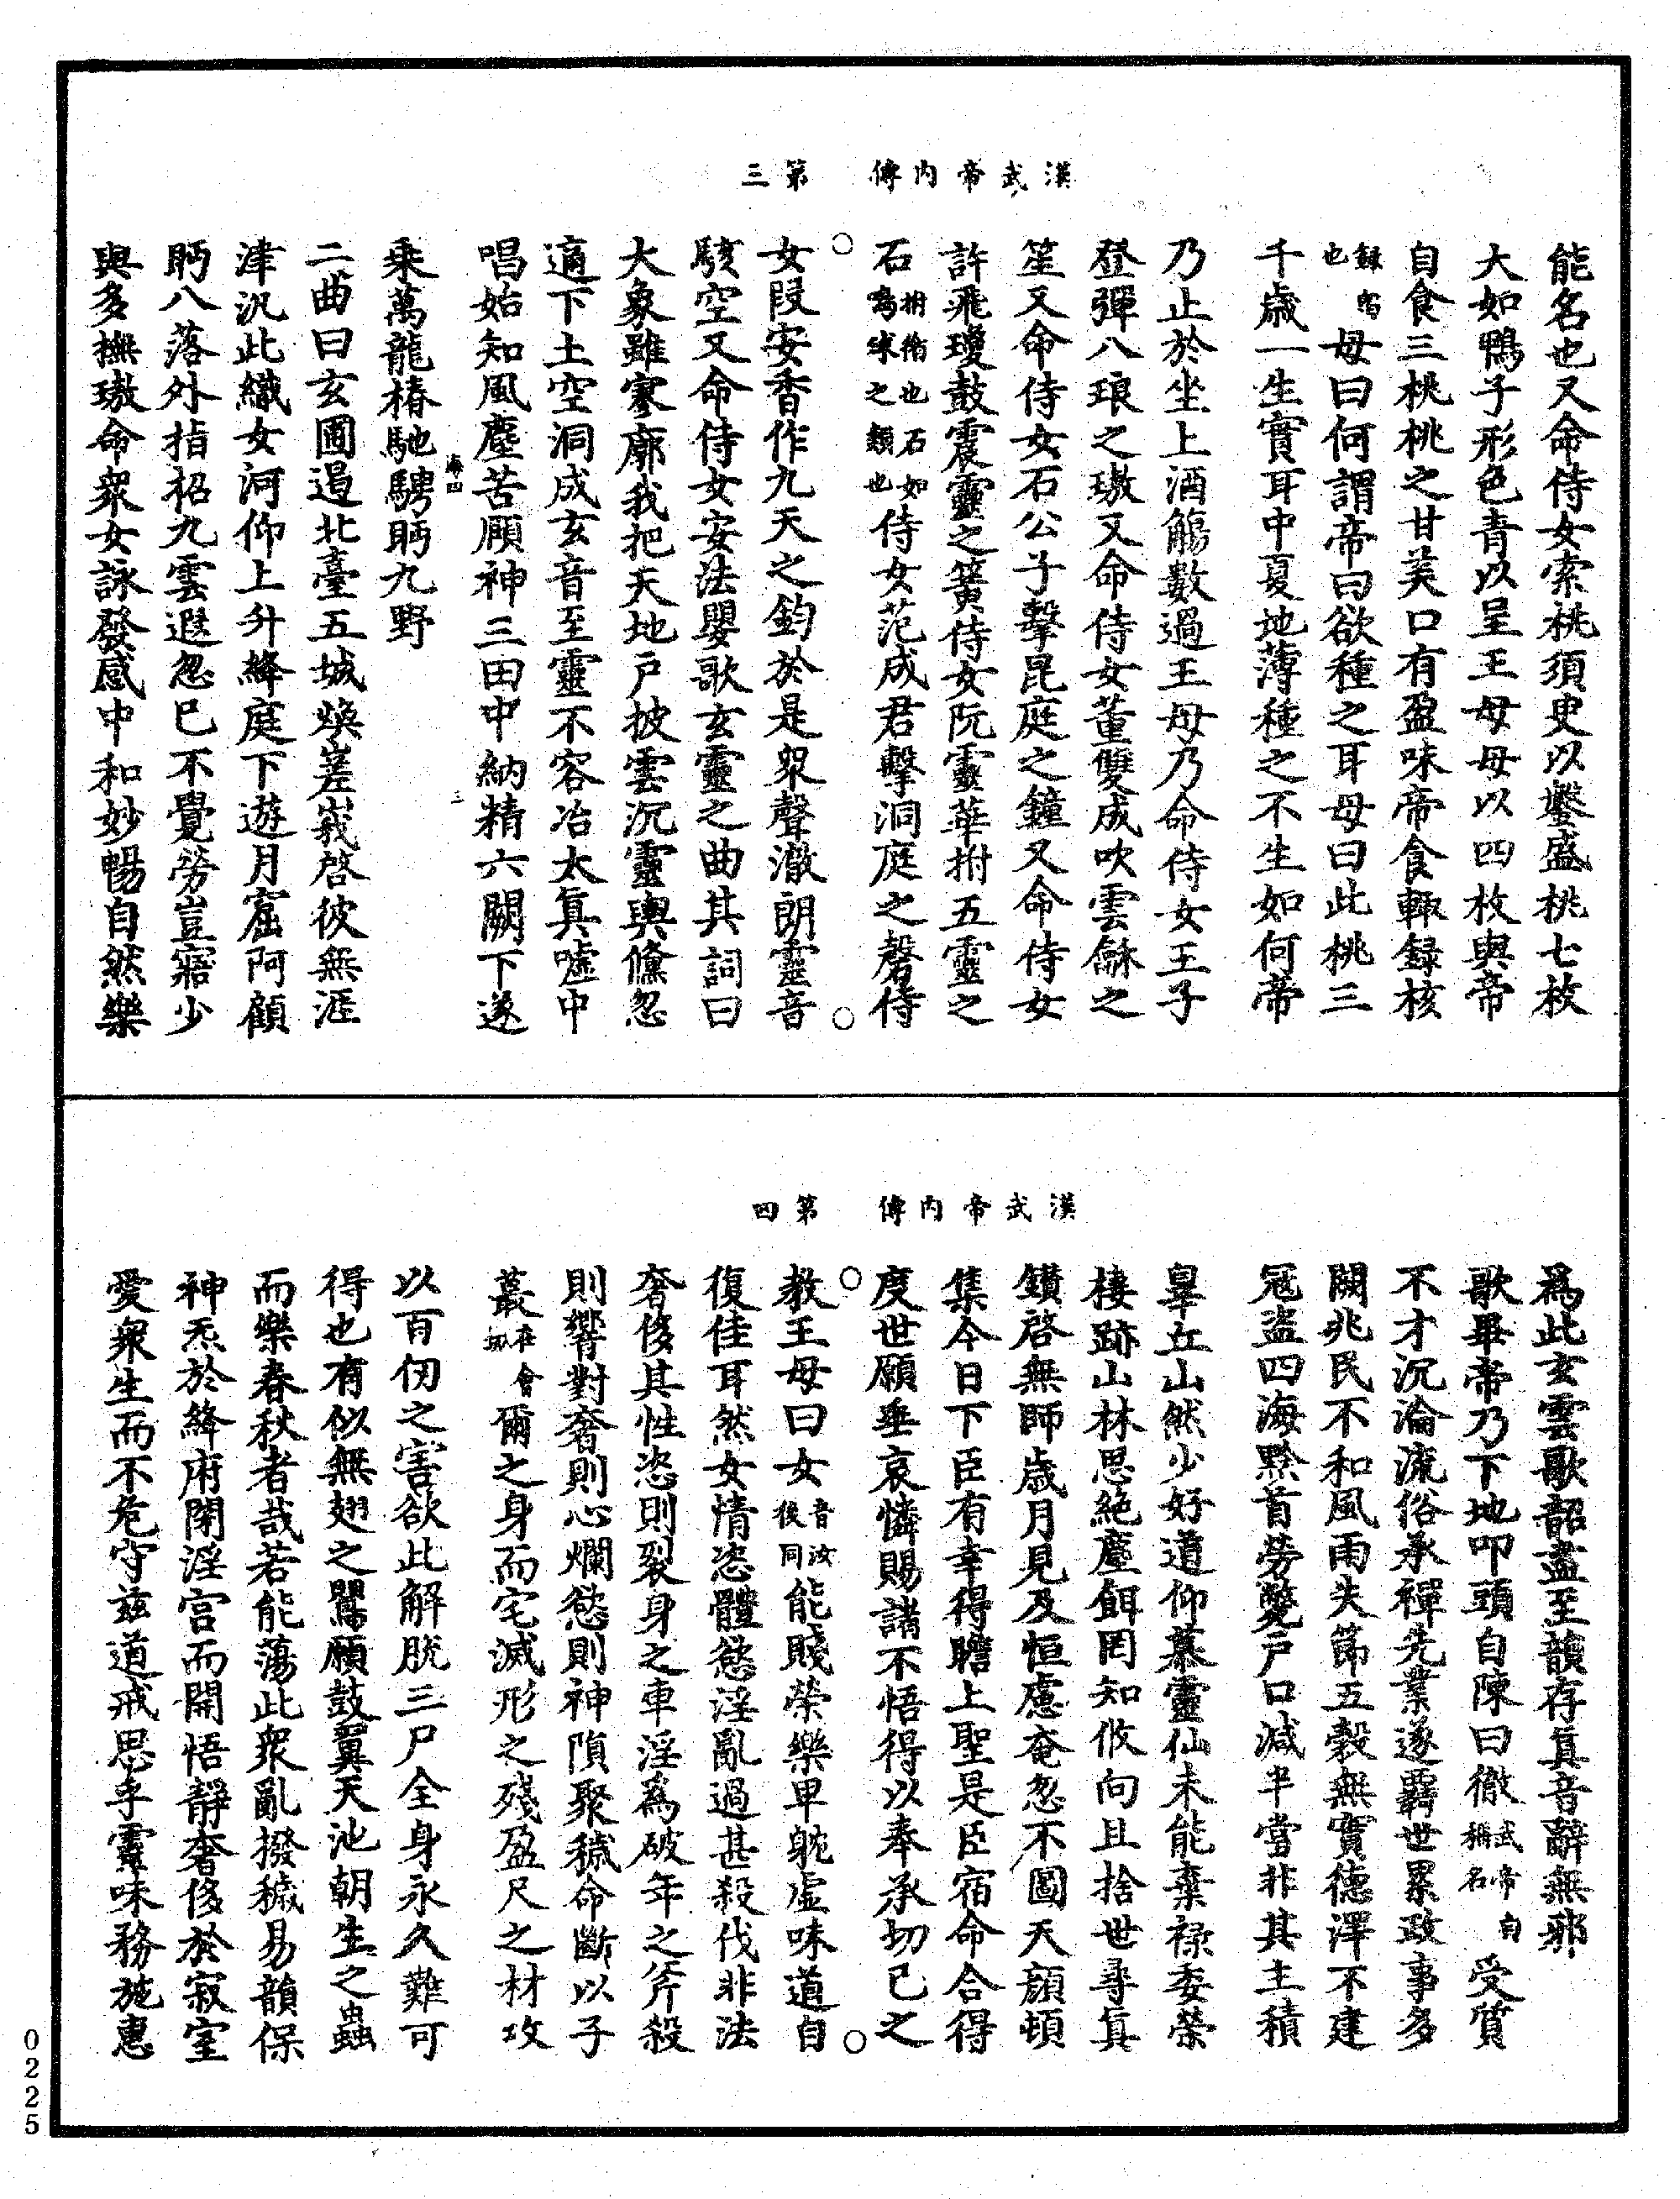 漢武帝內傳　第三
能名也又命侍女索桃須臾以鎜盛桃七枚
大如鴨子形色青以呈王母母以四枚與帝
自食三桃桃之甘美口有盈味帝食輒録核
録㫚也母曰何謂帝曰欲種之耳母曰此桃三
千歲一生實耳中夏地薄種之不生如何帝
乃止於坐上酒觴數過王母乃命侍女王子
登彈八琅之璈又命侍女董雙成吹雲龢之
笙又命侍女石公子擊昆庭之鐘又命侍女
許飛瓊鼓震靈之簧侍女阮靈華拊五靈之
石拊循也石如鳴球之類也侍女范成君擊洞庭之磬侍
女段安香作九天之鈞於是衆聲澈朗靈音
駭空又命侍女安法嬰歌玄靈之曲其詞曰
大象雖寥廓我把天地户披雲沉靈輿儵忽
適下土空洞成玄音至靈不容冶太真嘘中
唱始知風塵苦願神三田中納精六闕下遂
海四　三
乗萬龍椿馳騁眄九野
二曲曰玄圃遏北臺五城煥嵳峩啓彼無涯
津汎此織女河仰上升絳庭下遊月窟阿顧
眄八落外指招九雲遐忽已不覺勞豈寤少
與多撫璈命衆女詠發感中和妙暢自然樂
漢武帝內傳　第四
爲此玄雲歌韶盡至韻存真音辭無邪
歌畢帝乃下地叩頭自陳曰徹武帝自稱名受質
不才沉淪流俗承禪先業遂羇世累政事多
闕兆民不和風雨失節五穀無實德澤不建
冦盗四海黔首勞斃户口減半當非其主積
辠丘山然少好道仰慕靈仙未能棄禄委榮
棲跡山林思絶塵餌罔知攸向且捨世尋真
鑚啓無師歲月見及恒慮奄忽不圖天顔頓
集今日下臣有幸得瞻上聖是臣宿命合得
度世願垂哀憐賜諸不悟得以奉承切已之
教王母曰女音汝後同能賤榮樂卑躭虚味道自
復佳耳然女情恣體慾淫亂過甚殺伐非法
奢侈其性恣則裂身之車淫爲破年之斧殺
則響對奢則心爛慾則神隕聚穢命斷以子
蕞在會切爾之身而宅滅形之殘盈尺之材攻
以百仞之害欲此解脱三尸全身永久難可
得也有似無翅之鷃願鼓翼天池朝生之蟲
而樂春秋者哉若能蕩此衆亂撥穢易韻保
神炁於絳府閉淫宫而開悟靜奢侈於寂室
愛衆生而不危守兹道戒思乎靈味務施惠
0225